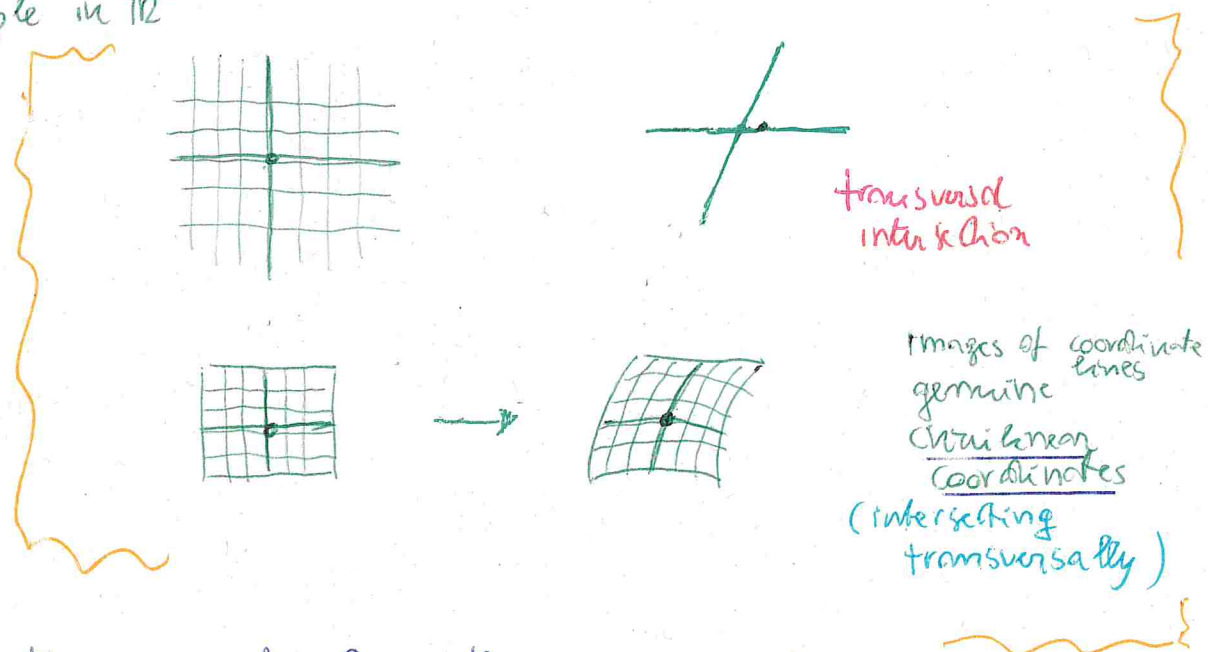 in IR
transversal
intersection
Images of coordinate
lines
genuine
curvilinear
coordinates
(intersecting
transversally)